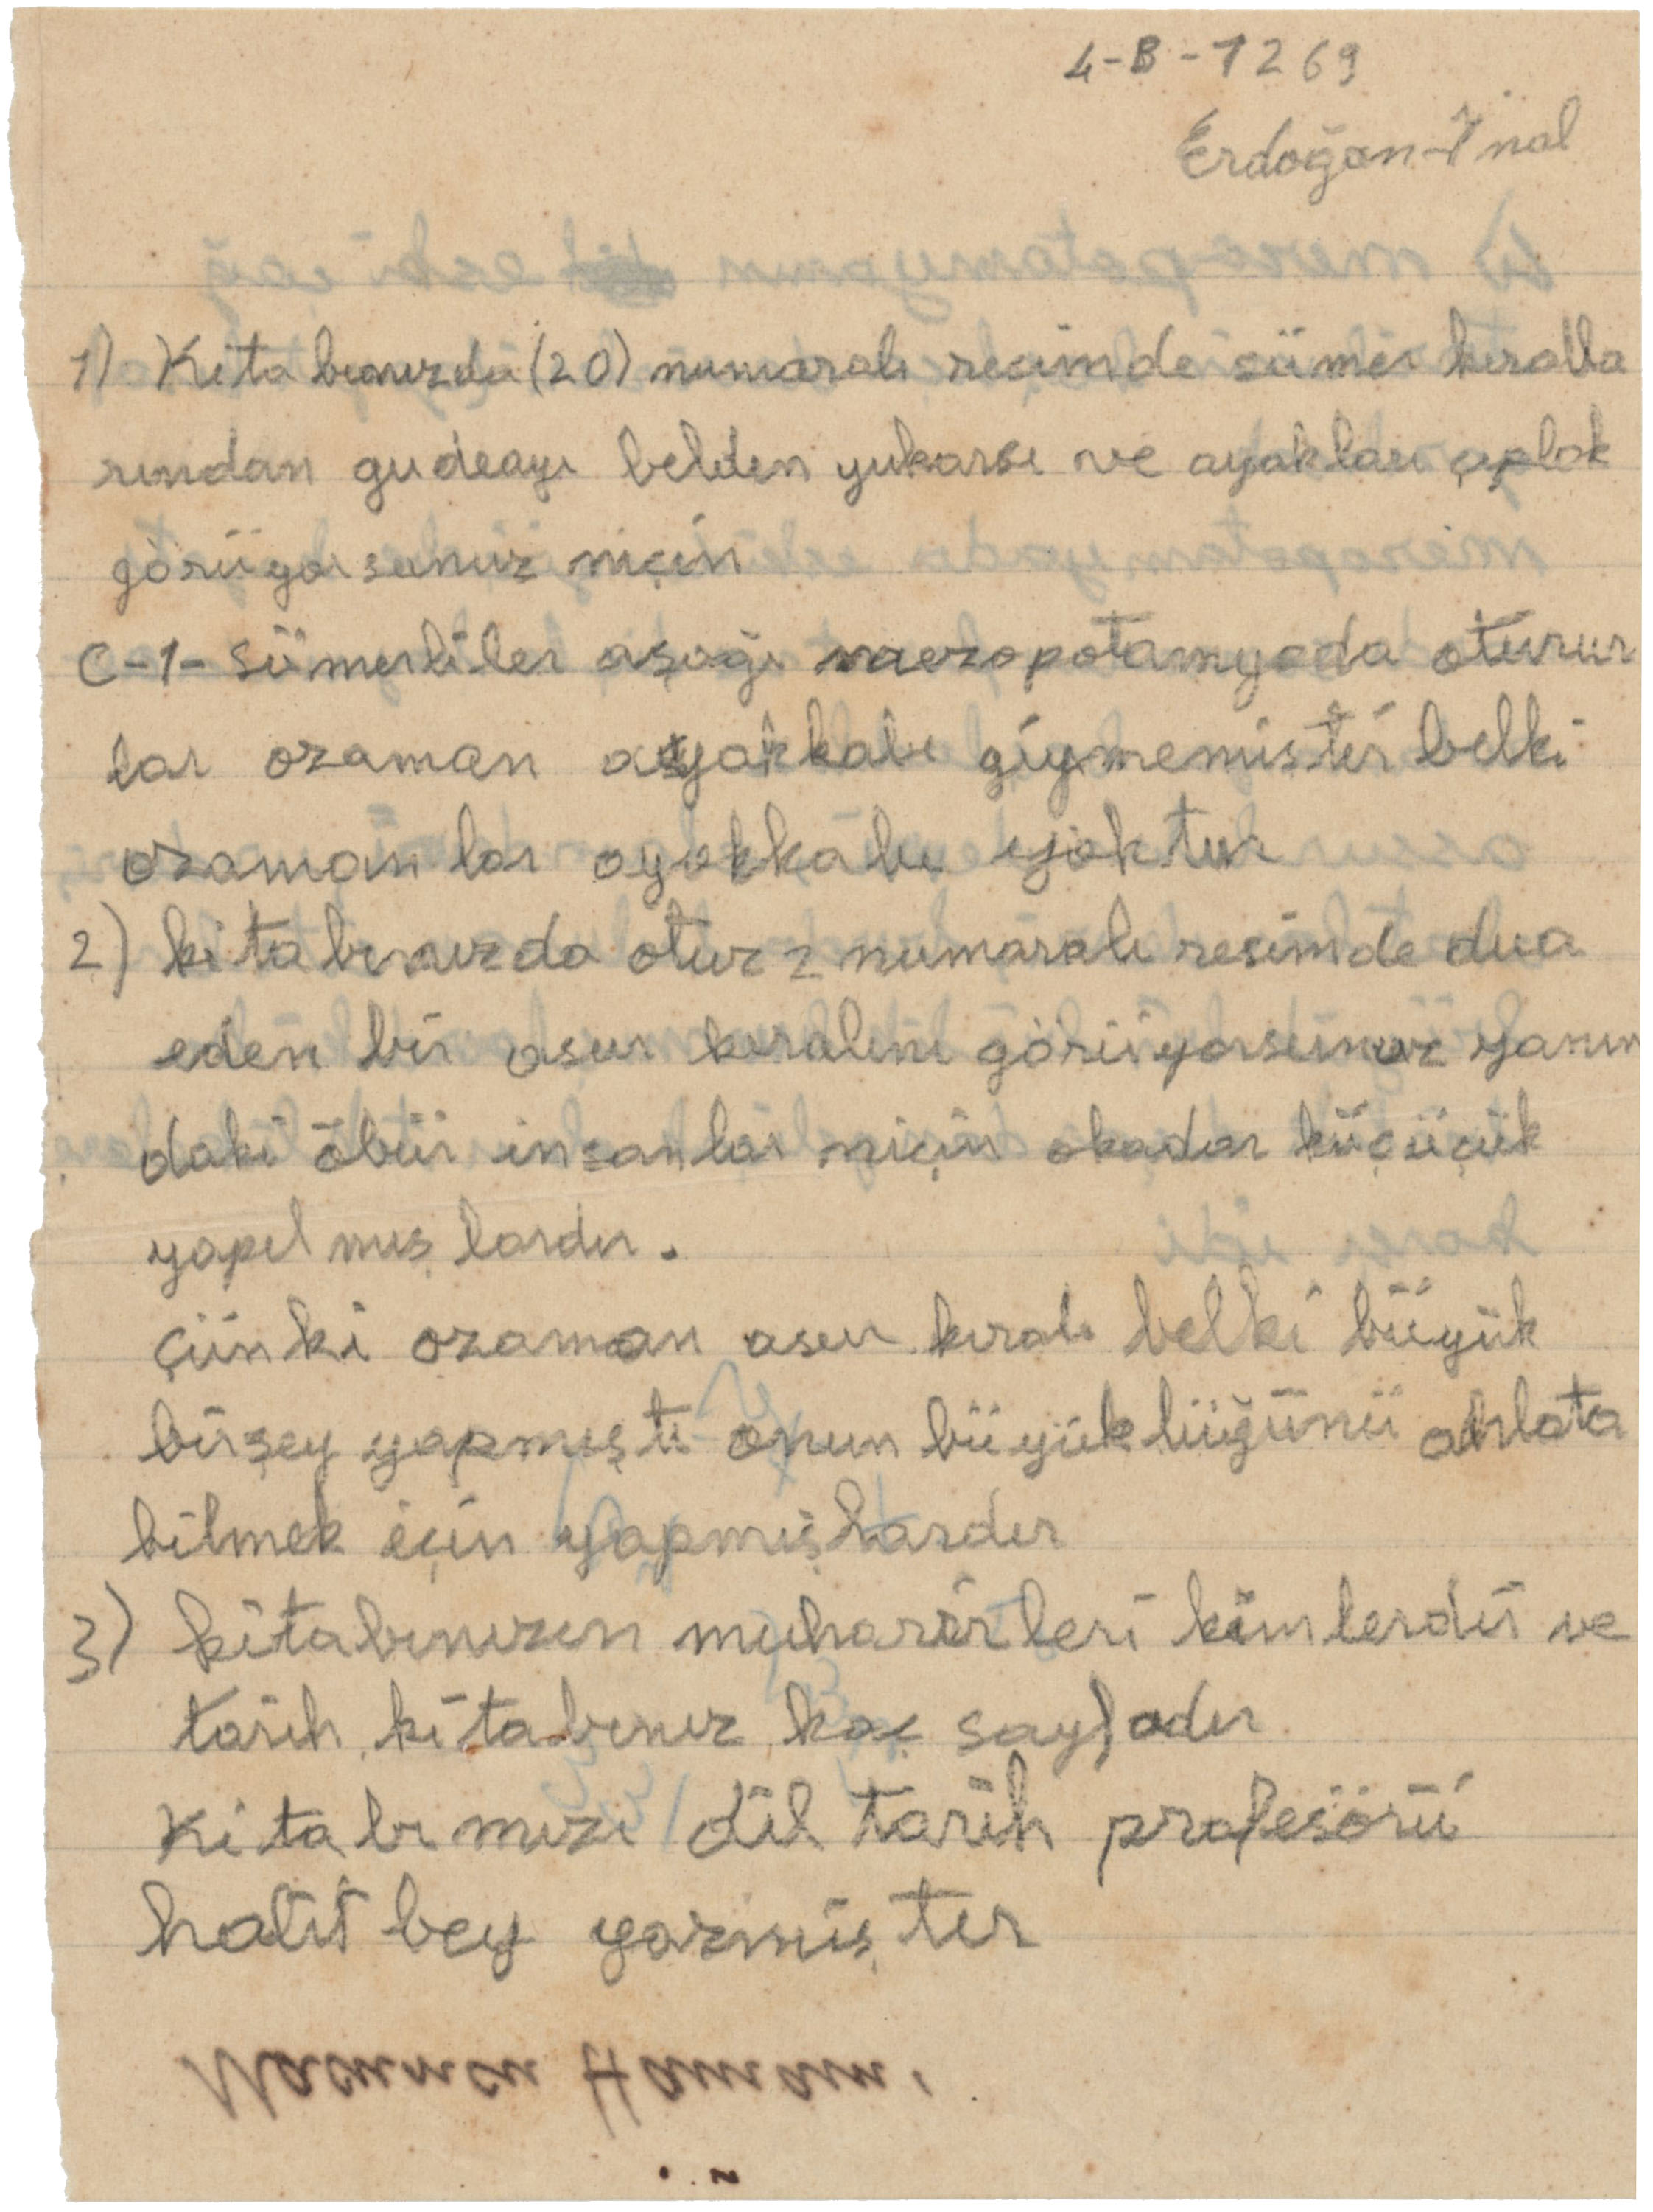 4-B-1269
Erdoğan-İnal
1) Kitabınızda (20) numaralı resimde sümer kıralla
rından gudeayı belden yukarsı ve ayakları çıplak
görüyorsunuz niçin
C-1- Sümerliler aşağı mezopotamyada oturur
lar ozaman ayakkabı giymemiştir belki
ozamanlar ayakkabı yoktur
2) kitabınızda otuz 2 numaralı resimde dua
eden bir asur kıralını görüyorsunuz yanın
daki öbür insanlar niçin okadar küçücük
yapılmışlardır.
çünki ozaman asur kıralı belki büyük
birşey yapmıştı onun büyüklüğünü anlata
bilmek için yapmışlardır
3) kitabınızın muharirleri kimlerdir ve
tarih kitabınız kaç sayfadır
Kitabımızı dil tarih profesörü
halit bey yazmıştır